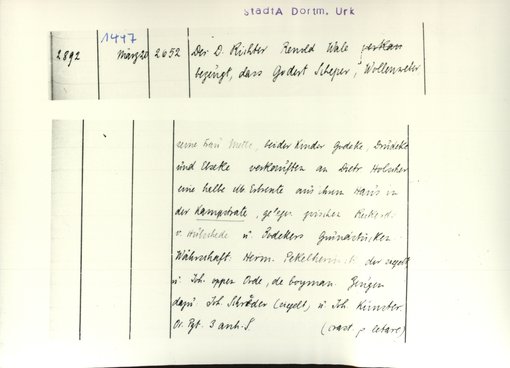 StadtA Dortm. Urk
1447
2892 März 20 2652 Der D. Richter Renold Wale
bezeugt, dass Godert Scheper, Wollenweber
seine Frau Mette, beider Kinder Godeke, Drudeke
und Elseke verkauften an Dietr Holscher
eine halbe Mk Erbrente aus ihrem Haus in
der Kampstrate, gelegen zwischen Richard
v. Hülschede u Grundstücken.
Währschaft. Herm. der
u. Joh. oppen Orde, de boyman. Zeugen
dazu Joh Schröder (siegelt) u Joh. Künster.
Or. Pgt. 3 anh. S. letare)